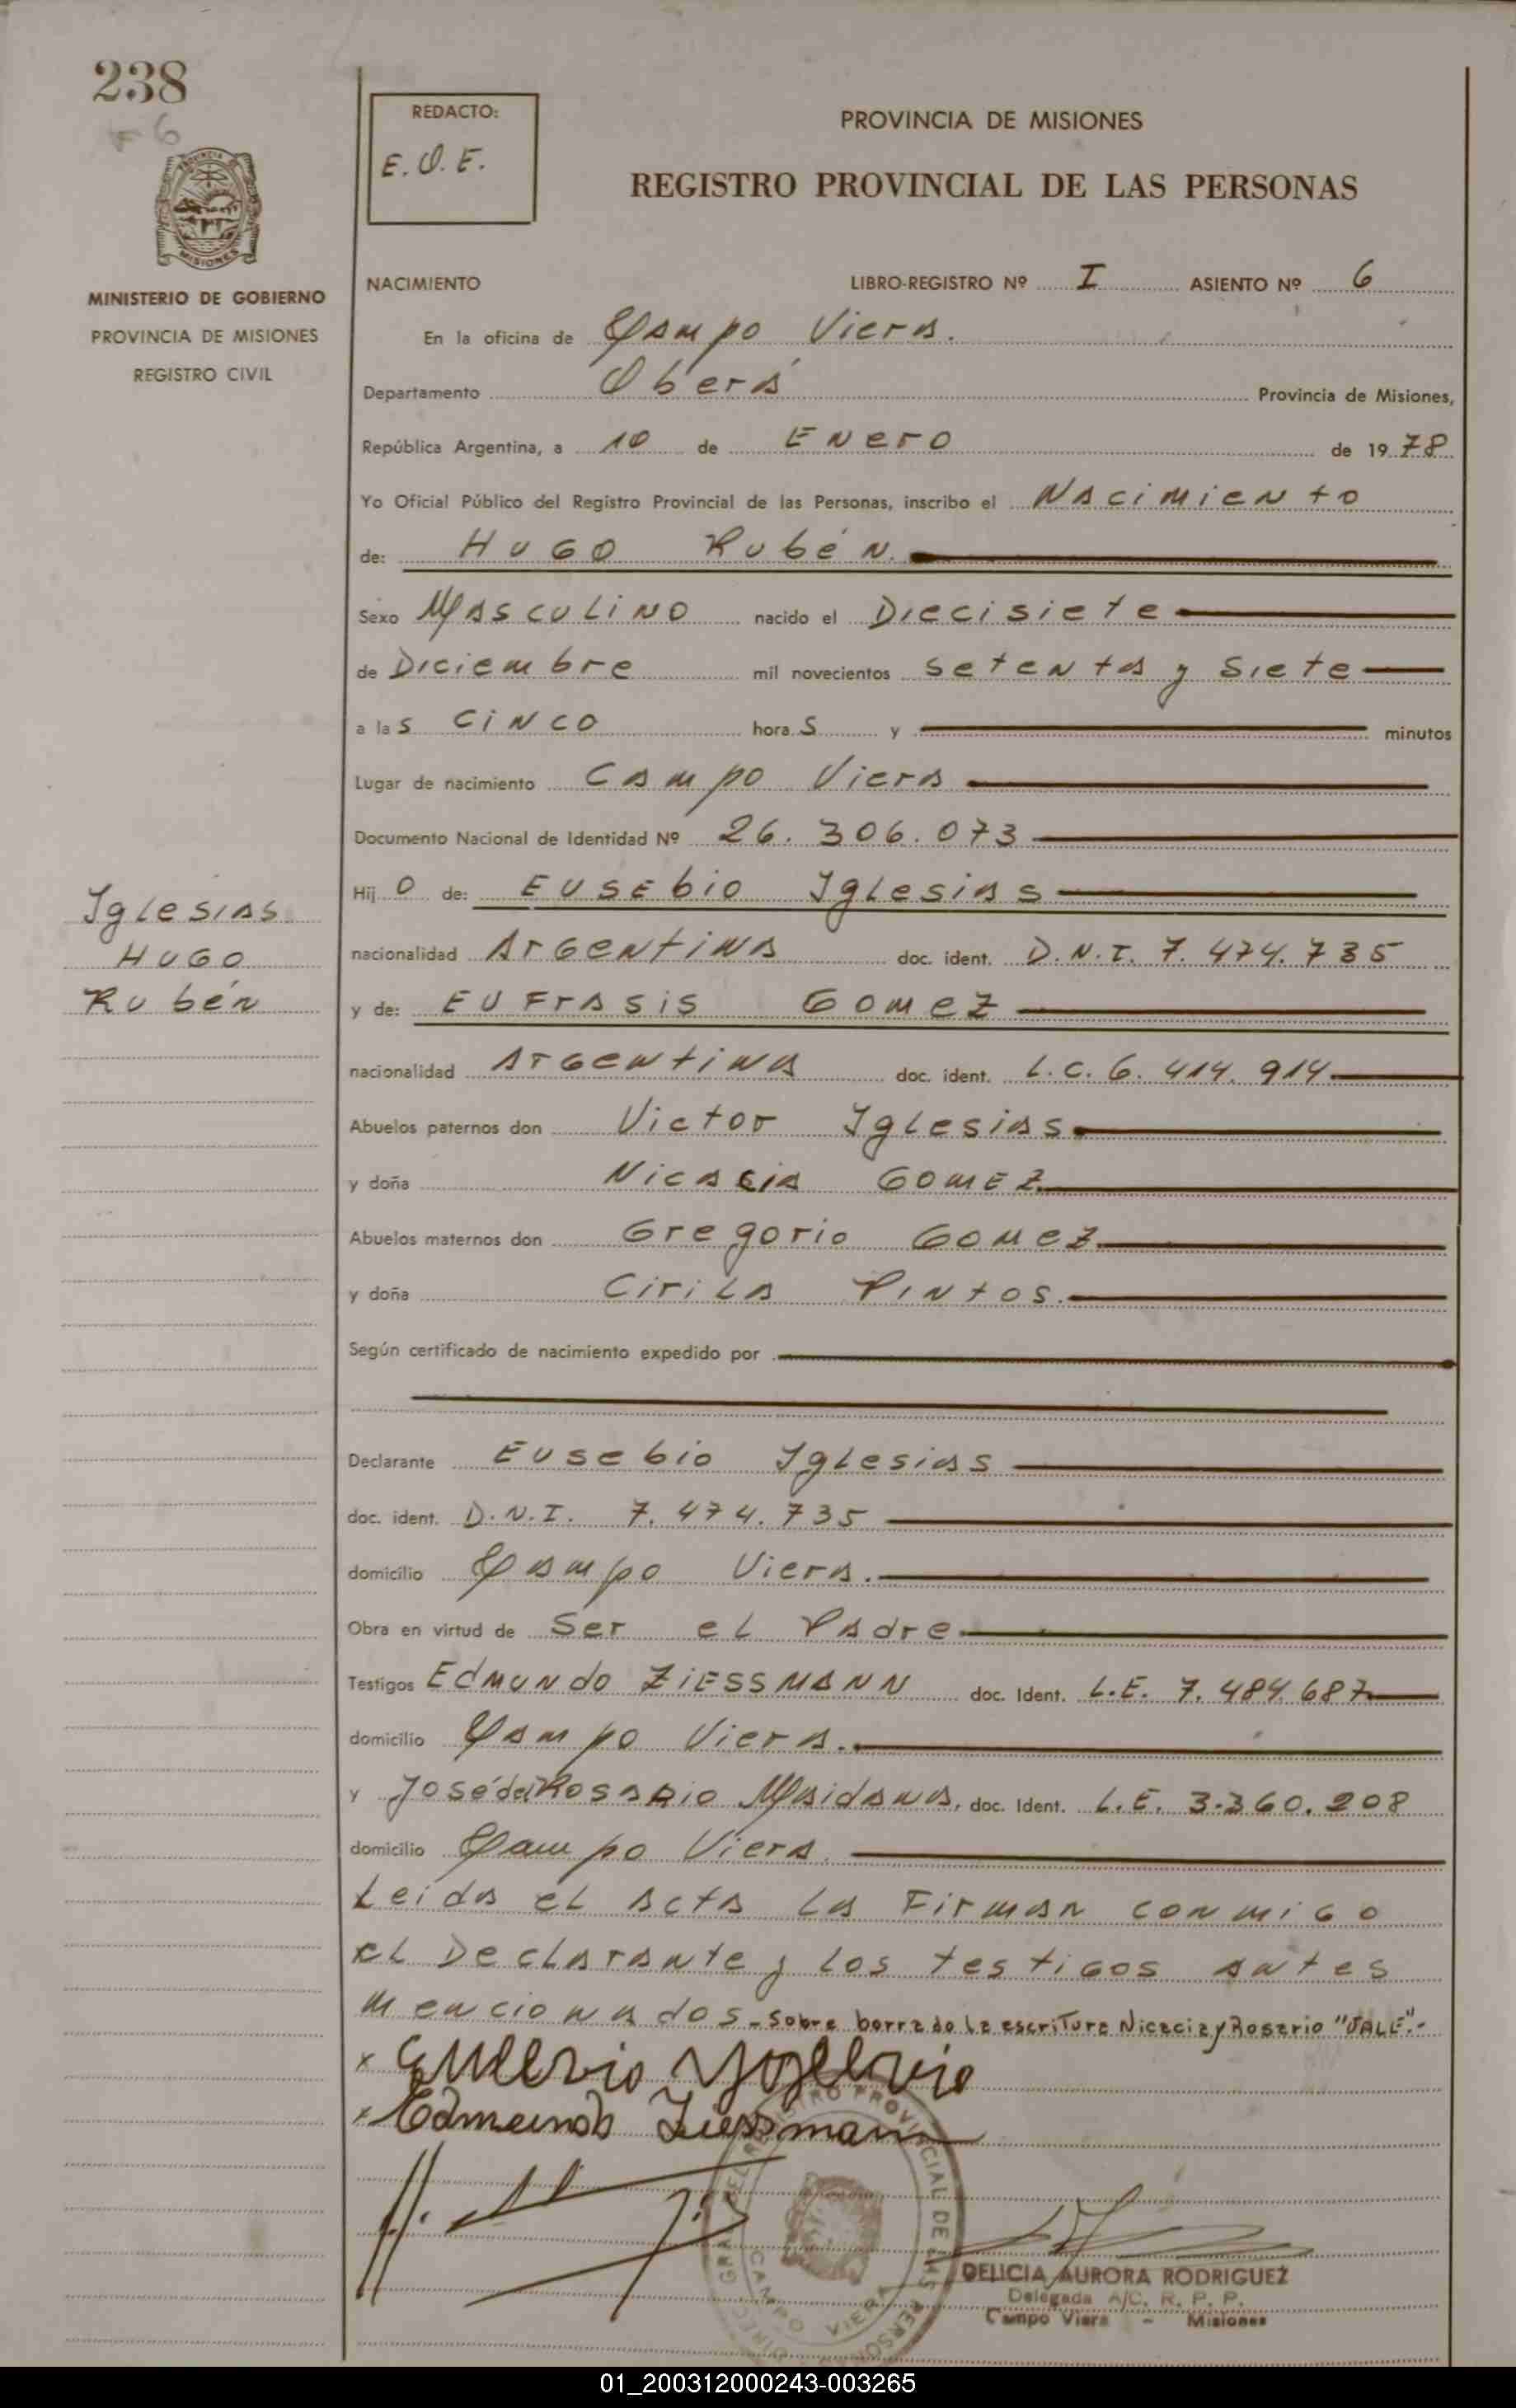 238
6
REDACTO:
E.O.E.
PROVINCIA DE MISIONES
REGISTRO PROVINCIAL DE LAS PERSONAS
MINISTERIO DE GOBIERNO
PROVINCIA DE MISIONES
REGISTRO CIVIL
NACIMIENTO LIBRO-REGISTRO Nº I ASIENTO Nº 6
En la oficina de Campo Viera.
Departamento Oberá Provincia de Misiones,
República Argentina, a 10 de Enero de 1978
Yo Oficial Público del Registro Provincial de las Personas, inscribo el Nacimiento
de: HUGO Rubén.
Sexo Masculino nacido el Diecisiete
de Diciembre mil novecientos setenta y siete
a las cinco horas y minutos
Lugar de nacimiento Campo Viera
Documento Nacional de Identidad Nº 26.306.073
Hijo de: Eusebio Iglesias
Iglesias
HUGO
Rubén
nacionalidad Argentina doc. ident. D.N.I. 7.474.735
y de: Eufrasia Gomez
nacionalidad Argentina doc. ident. L.C. 6.414.914
Abuelos paternos don Victor Iglesias
y doña Nicacia Gomez
Abuelos maternos don Gregorio Gomez
y doña Cirila Pintos.
Según certificado de nacimiento expedido por
Declarante Eusebio Iglesias
doc. ident. D.N.I. 7.474.735
domicilio Campo Viera.
Obra en virtud de Ser el Padre
Testigos Edmundo Ziessmann doc. Ident. L.E. 7.484.687
domicilio Campo Viera.
y José del Rosario Maidana, doc. Ident. L.E. 3.360.208
domicilio Campo Viera.
Leida el acta la Firman conmigo
el Declarante y los testigos antes
mencionados. - Sobre borrado la escritura Nicacia y Rosario "VALE".-
x
x Edmundo Ziessmann
DELICIA AURORA RODRIGUEZ
Delegada A/C. R. P. P.
Campo Viera - Misiones
REGISTRO PROVINCIAL DE LAS PERSONAS
CAMPO VIERA
01_200312000243-003265